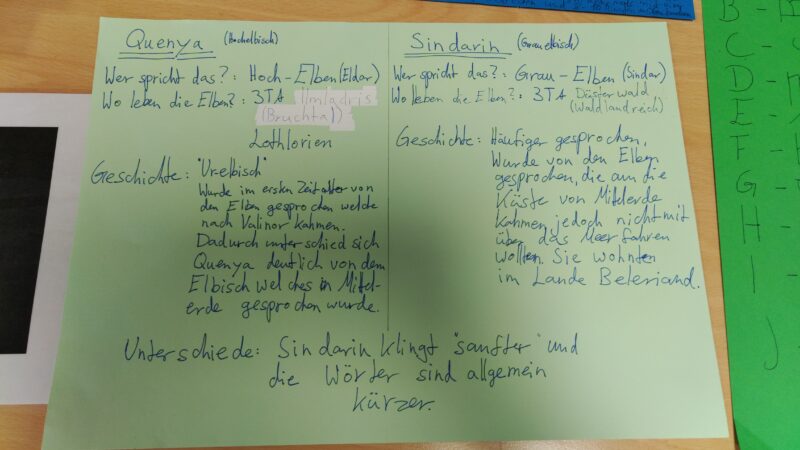 Quenya (Hochelbisch)
Wer spricht das?: Hoch-Elben (Eldar)
Wo leben die Elben?: 3TA Imladris
(Bruchtal)
Lothlorien
Geschichte: "Urelbisch"
Wurde im ersten Zeitalter von
den Elben gesprochen welche
nach Valinor kahmen.
Dadurch unterschied sich
Quenya deutlich von dem
Elbisch welches in Mittel-
erde gesprochen wurde.
Sindarin (Grauelbisch)
Wer spricht das?: Grau-Elben (Sindar)
Wo leben die Elben?: 3TA Düsterwald
(Waldlandreich)
Geschichte: Häufiger gesprochen,
Wurde von den Elben
gesprochen, die an die
Küste von Mittelerde
kahmen, jedoch nicht mit
über das Meer fahren
wollten. Sie wohnten
im Lande Beleriand.
Unterschiede: Sindarin klingt "sanfter" und
die Wörter sind allgemein
kürzer.
B -
C -
D -
E -
F -
G -
H -
I -
J -